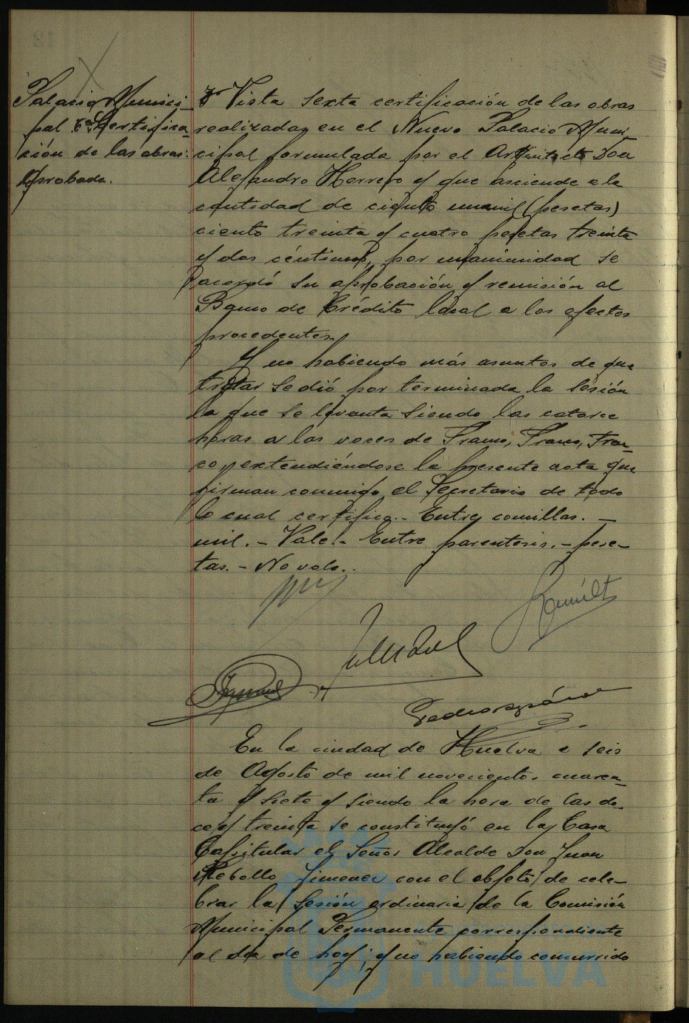 Palacio Munici-
pal 6ª Certifica-
ción de las obras.
Aprobada.
Vista sexta certificación de las obras
realizadas en el Nuevo Palacio Muni-
cipal formulada por el Arquitecto Don
Alejandro Herrero y que asciende a la
cantidad de ciento "mil" (pesetas)
ciento treinta y cuatro pesetas treinta
y dos céntimos, por unanimidad se
acordó su aprobación y remisión al
Banco de Crédito Local a los efectos
procedentes.
Y no habiendo más asuntos de que
tratar se dió por terminada la sesión
la que se levanta siendo las catorce
horas a las voces de Franco, Franco, Fran-
co, extendiéndose la presente acta que
firman conmigo el Secretario de todo
lo cual certifico.- Entre comillas.-
mil.- Vale.- Entre parentesis.- pese-
tas.- No vale.-
En la ciudad de Huelva a seis
de Agosto de mil novecientos cuaren-
ta y siete y siendo la hora de las do-
ce y treinta se constituyó en la Casa
Capitular el Señor Alcalde Don Juan
Rebollo Jimenez con el objeto de cele-
brar la sesión ordinaria de la Comisión
Municipal Permanente correspondiente
al día de hoy; y no habiendo concurrido
HUELVA